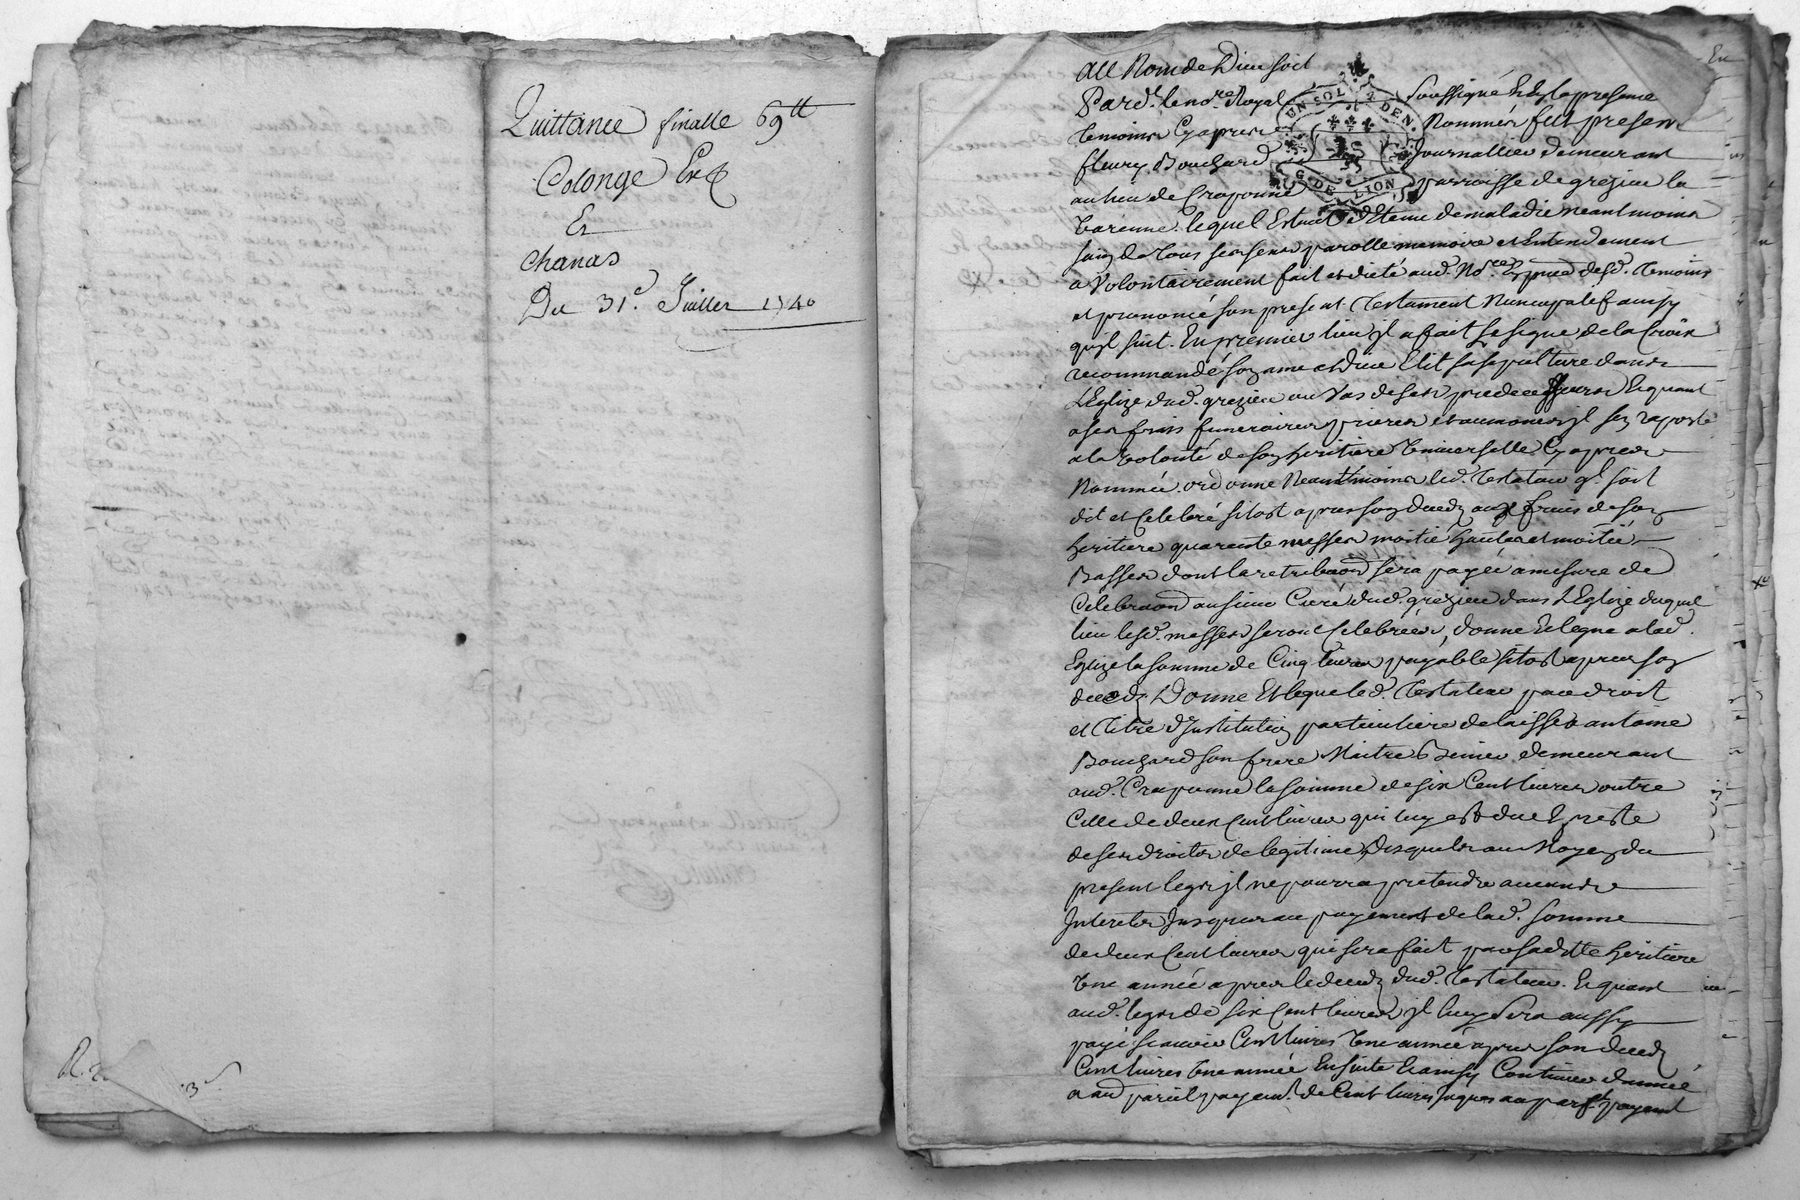 Quittance finalle 69tt
Colonge Exr
Et
Chanas
Du 31e. Juillet 1740
R. 3s.
Au Nom de Dieu soit
Pard.t le no.re Royal soussigné En la presence
temoins Cy apres Nommés fut present
fleury Bouchard Journallier demeurant
au lieu de Craponne parroisse de grezieu la
UN SOL 4 DEN.
G. DE LION
Varenne. lequel Estant detenu de maladie neantmoins
sain de tous ses sens parolle memoire et Entendement
a Volontairement fait et dicté aud. No.re En pnce desd. temoins
et prononcé son present testament Nuncupatif ainsy
qu'jl suit. En premier lieu jl a fait le signe de la Croix
recommandé son ame a Dieu Elit sa sepulture dans
L'Eglize dud. grezieu au Vas de ses predecesseurs Et quant
a ses frais funeraires prieres et aumones jl s'en raporte
a la Volonté de son heritiere Universelle Cy apres
Nommée. ordonne Neantmoins led. testateur q.l soit
dit et Celebré sitost apres son decedz aux frais de son
heritiere quarente messes moitié hautes et moitié
Basses dont la retribu͠on sera payée a mesure de
Celebra͠on au sieur Curé dud. grezieu dans L'Eglize duquel
lieu lesd. messes seront Celebrées, donne Et legue a lad.
Eglize la somme de Cinq livres payable sitost apres son
decedz Donne Et legue led. testateur par droit
et titre d'Institution particuliere delaisse a antoine
Bouchard son frere Maitre Benier demeurant
aud. Craponne la somme de six Cent livres outre
Celle de deux Cent livres qui luy est due de reste
de ses droits de legitime, desquels au Moyen du
present legs jl ne pourra pretendre aucuns
Interets Jusques au payement de lad. somme
de deux Cent livres qui sera fait par sadtte heritiere
Une année apres le decedz dud. testateur. Et quant
aud. legs de six Cent livres jl luy sera aussy
payé scavoir Cent livres Une année apres son decedz
Cent livres Une année Ensuite Et ainsy Continuer d'année
a au͠e pareil payem.t de Cent livres Jusques au parft payemt